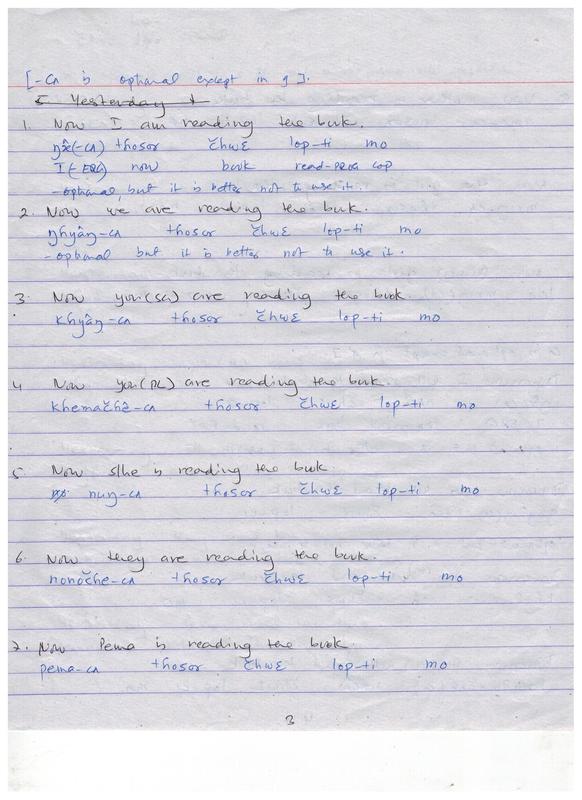 [-CA is optional except in 9].
Yesterday I
1. Now I am reading the book.
ŋʌ̂(-CA) thosor čhwɛ lop-ti mo
I(-ERG) now book read-PROG COP
-optional, but it is better not to use it.
2. Now we are reading the book.
ŋhyâŋ-CA thosor čhwɛ lop-ti mo
-optional but it is better not to use it.
3. Now you(SG) are reading the book
khyâŋ-CA thosor čhwɛ lop-ti mo
4 Now you(PL) are reading the book.
khemačhê-CA thosor čhwɛ lop-ti mo
5. Now s/he is reading the book
nuŋ-CA thosor čhwɛ lop-ti mo
6. Now they are reading the book.
nonočhe-CA thosor čhwɛ lop-ti mo
7. Now Pema is reading the book
pema-CA thosor čhwɛ lop-ti mo
3